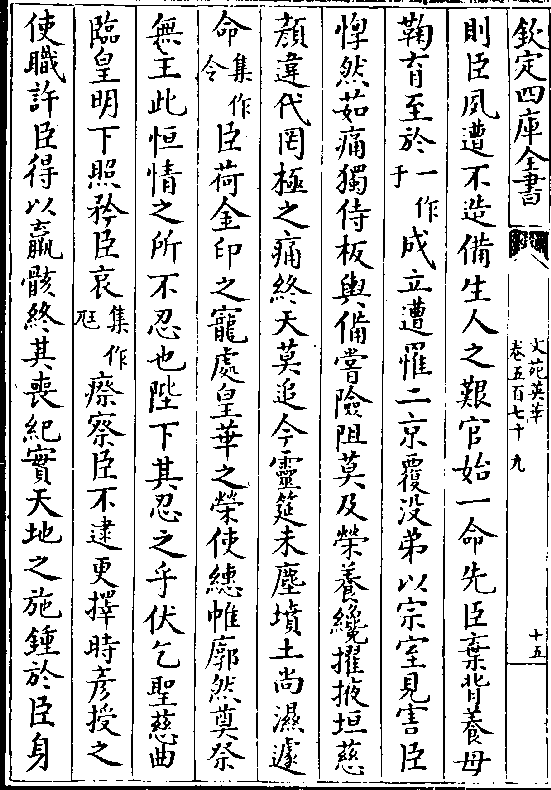 欽定四庫全書
文苑英華
卷五百七十九
十五
則臣夙遭不造備生人之艱官始一命先臣棄背養母
鞠育至於一作于成立遭罹二京覆没弟以宗室見害臣
悙然茹痛獨侍板輿備嘗險阻莫及榮養纔擢掖垣慈
顔違代罔極之痛終天莫追今靈筵未塵墳土尚濕遽
命集作令臣荷金印之寵處皇華之榮使繐帷廓然奠祭
無王此恒情之所不忍也陛下其忍之乎伏乞聖慈曲
臨皇明下照矜臣哀集作尫瘵察臣不逮更擇時彦授之
使職許臣得以羸骸終其喪紀實天地之施鍾於臣身